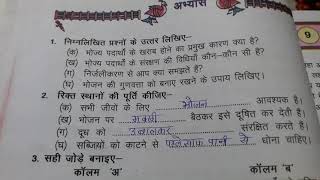 अभ्यास
9
1. निम्नलिखित प्रश्नों के उत्तर लिखिए–
(क) भोज्य पदार्थों के खराब होने का प्रमुख कारण क्या है?
(ख) भोज्य पदार्थों के संरक्षण की विधियाँ कौन–कौन सी है?
(ग) निर्जलीकरण से आप क्या समझते हैं?
(घ) भोजन की गुणवत्ता को बनाए रखने के उपाय लिखिए।
2. रिक्त स्थानों की पूर्ति कीजिए–
(क) सभी जीवों के लिए भोजन आवश्यक है।
(ख) भोजन पर मक्खी बैठकर इसे दूषित कर देती है।
(ग) दूध को उबालकर संरक्षित करते हैं।
(घ) सब्जियों को काटने से पहले साफ पानी से धोना चाहिए।
3. सही जोड़े बनाइए–
कॉलम 'अ' कॉलम 'ब'